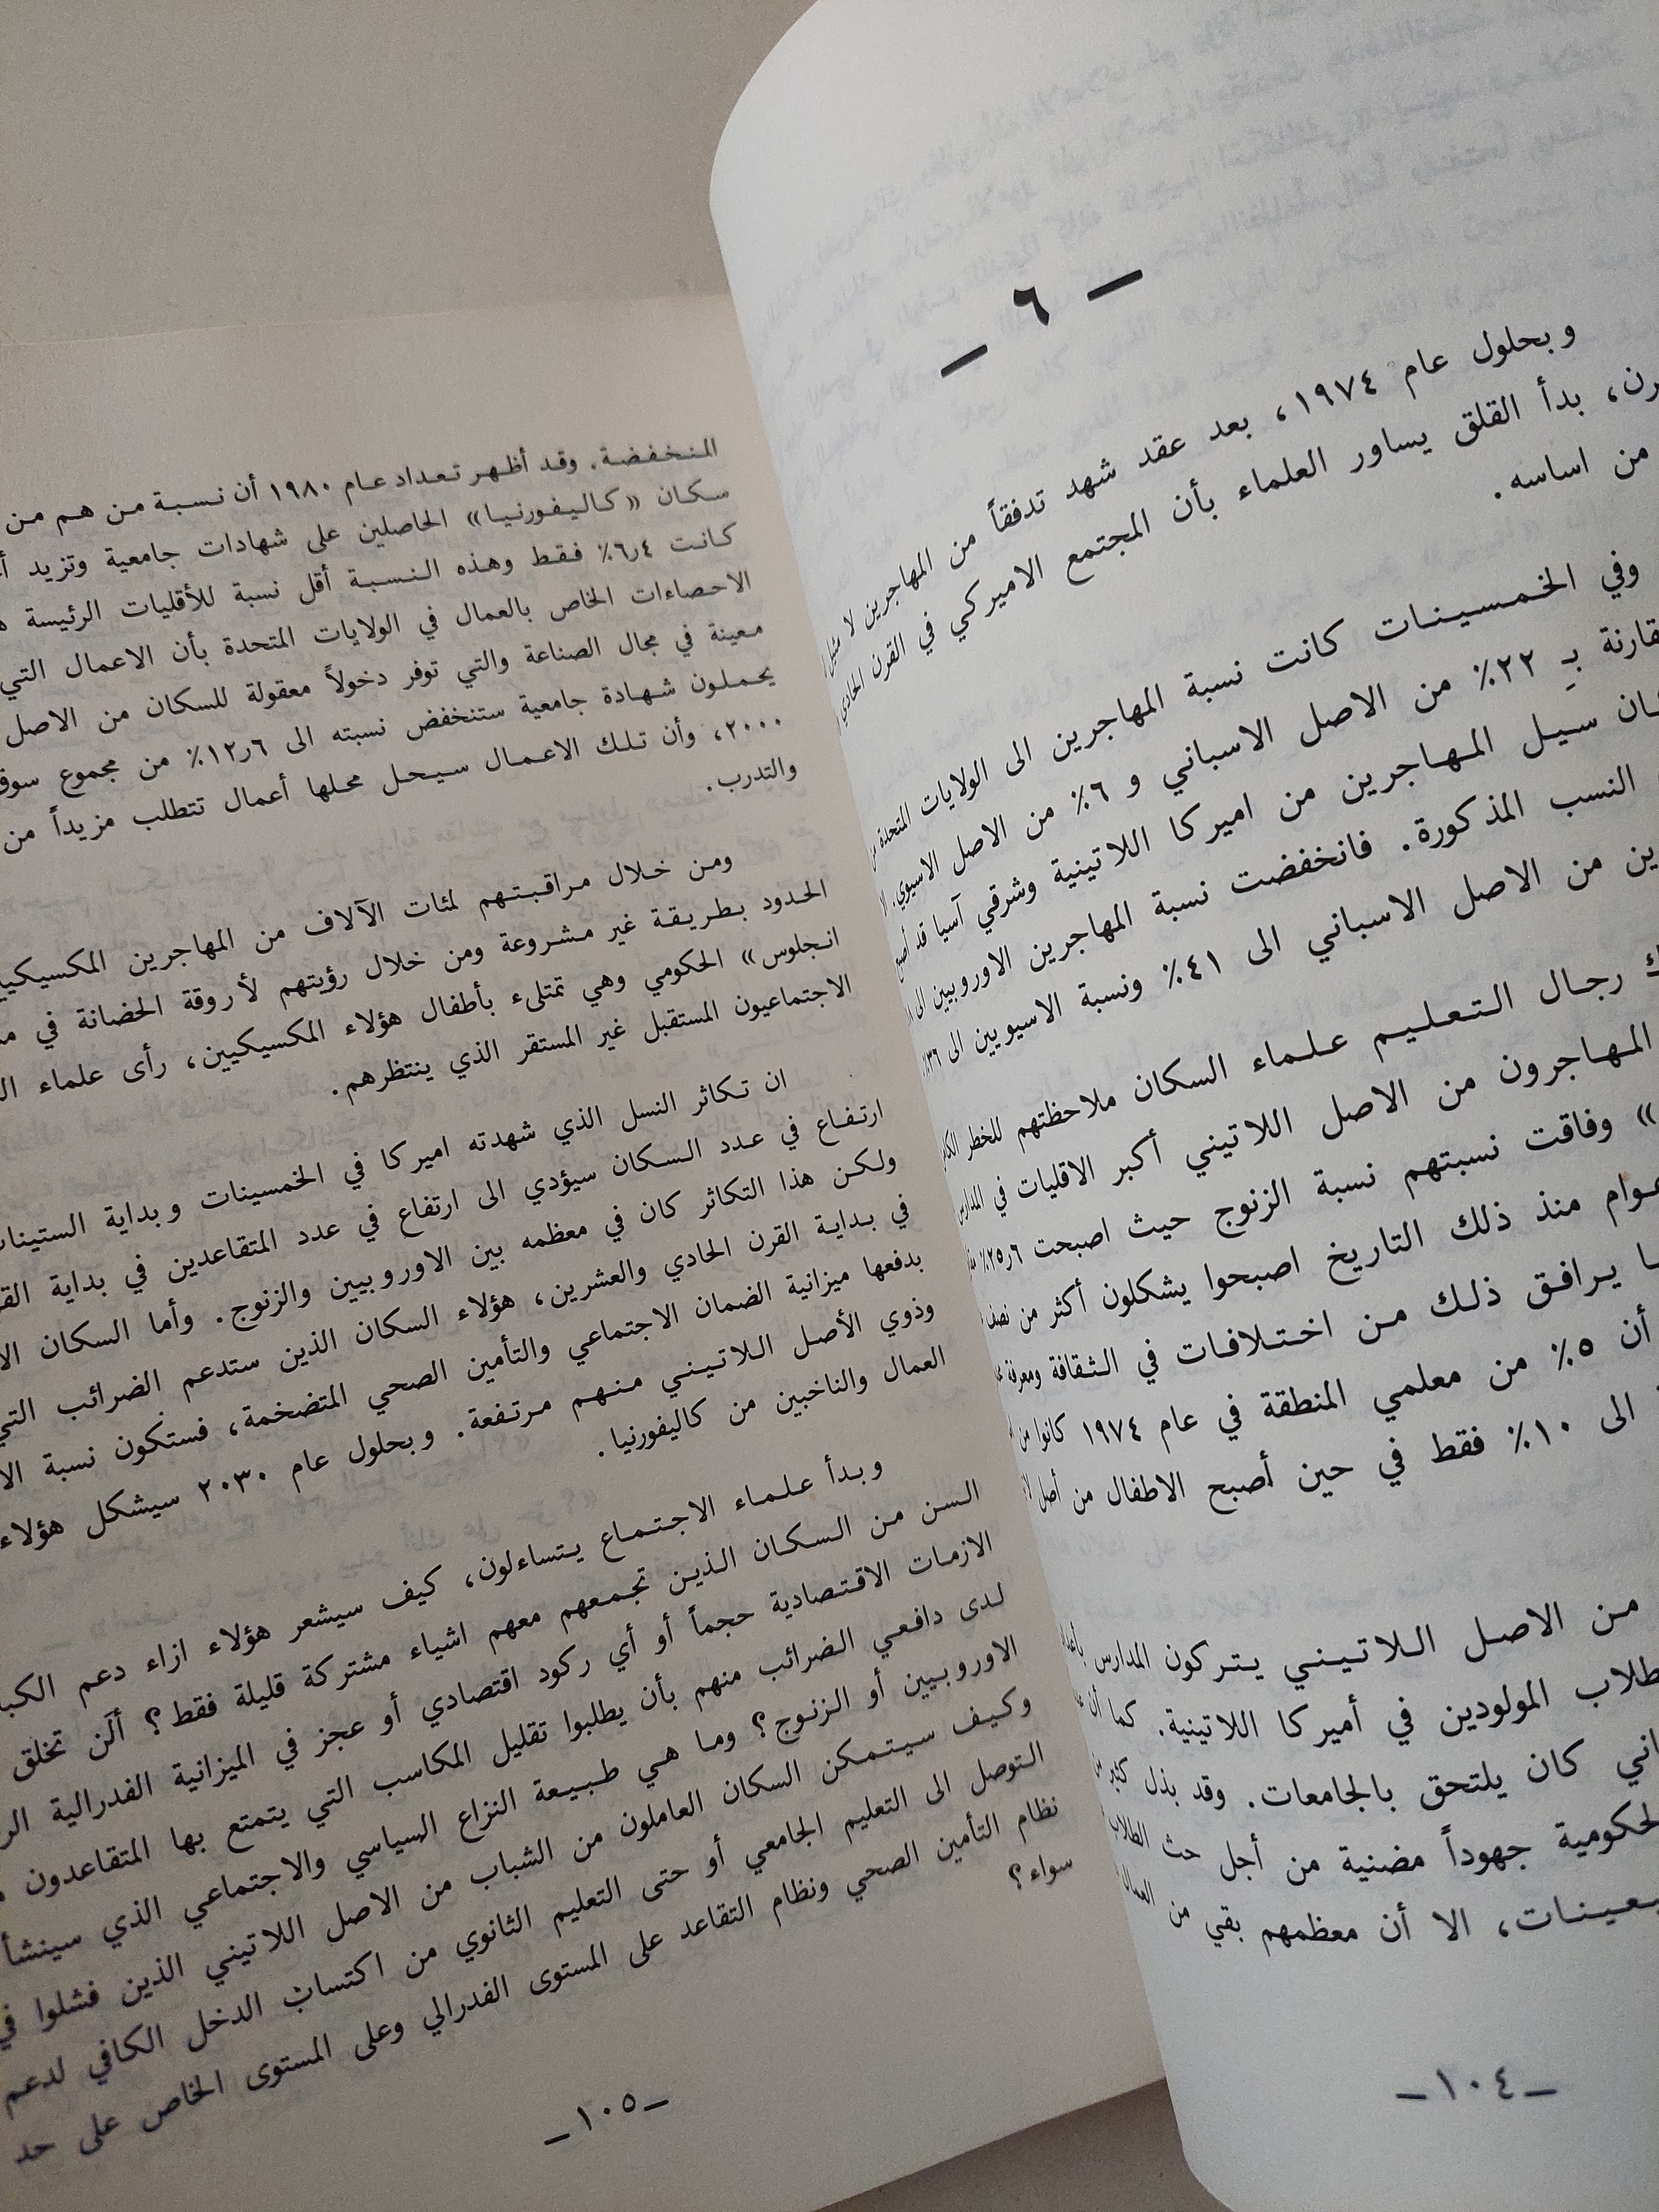 — ٦ —
وبحلول عام ١٩٧٤، بعد عقد شهد تدفقاً من المهاجرين لا مثيل
بدأ القلق يساور العلماء بأن المجتمع الاميركي في القرن الحادي
من اساسه.
وفي الخمسينات كانت نسبة المهاجرين الى الولايات المتحدة
بـِ ٢٢٪ من الاصل الاسباني و ٦٪ من الاصل الاسيوي.
سيل المهاجرين من اميركا اللاتينية وشرقي آسيا قد
النسب المذكورة. فانخفضت نسبة المهاجرين الاوروبيين الى
من الاصل الاسباني الى ٤١٪ ونسبة الاسيويين الى
رجال التعليم علماء السكان ملاحظتهم للخطر
المهاجرون من الاصل اللاتيني أكبر الاقليات في
» وفاقت نسبتهم نسبة الزنوج حيث اصبحت ٢٥٫٦٪
منذ ذلك التاريخ اصبحوا يشكلون أكثر من نصف
يرافق ذلك من اختلافات في الثقافة ومعرفة
أن ٥٪ من معلمي المنطقة في عام ١٩٧٤ كانوا من
الى ١٠٪ فقط في حين أصبح الاطفال من أصل
من الاصل اللاتيني يتركون المدارس
المولودين في أميركا اللاتينية. كما أن
كان يلتحق بالجامعات. وقد بذل كثير من
جهوداً مضنية من أجل حث الطلاب
الا أن معظمهم بقي من
— ١٠٤ —
المنخفضة. وقد أظهر تعداد عام ١٩٨٠ أن نسبة من هم من
سكان «كاليفورنيا» الحاصلين على شهادات جامعية وتزيد
كانت ٦٫٤٪ فقط وهذه النسبة أقل نسبة للأقليات الرئيسة
الاحصاءات الخاص بالعمال في الولايات المتحدة بأن الاعمال التي
معينة في مجال الصناعة والتي توفر دخولاً معقولة للسكان من الاصل
يحملون شهادة جامعية ستنخفض نسبته الى ١٢٫٦٪ من مجموع
٢٠٠٠، وأن تلك الاعمال سيحل محلها أعمال تتطلب مزيداً من
والتدرب.
ومن خلال مراقبتهم لمئات الآلاف من المهاجرين
الحدود بطريقة غير مشروعة ومن خلال رؤيتهم لأروقة الحضانة في
انجلوس» الحكومي وهي تمتلىء بأطفال هؤلاء المكسيكيين، رأى علماء
الاجتماعيون المستقبل غير المستقر الذي ينتظرهم.
ان تكاثر النسل الذي شهدته اميركا في الخمسينات وبداية
ارتفاع في عدد السكان سيؤدي الى ارتفاع في عدد المتقاعدين في بداية
ولكن هذا التكاثر كان في معظمه بين الاوروبيين والزنوج. وأما السكان
في بداية القرن الحادي والعشرين، هؤلاء السكان الذين ستدعم الضرائب التي
بدفعها ميزانية الضمان الاجتماعي والتأمين الصحي المتضخمة، فستكون نسبة
وذوي الأصل اللاتيني منهم مرتفعة. وبحلول عام ٢٠٣٠ سيشكل هؤلاء
العمال والناخبين من كاليفورنيا.
وبدأ علماء الاجتماع يتساءلون، كيف سيشعر هؤلاء ازاء دعم
السن من السكان الذين تجمعهم معهم اشياء مشتركة قليلة فقط؟ ألن تخلق
الازمات الاقتصادية حجماً أو أي ركود اقتصادي أو عجز في الميزانية الفدرالية
لدى دافعي الضرائب منهم بأن يطلبوا تقليل المكاسب التي يتمتع بها المتقاعدون
الاوروبيين أو الزنوج؟ وما هي طبيعة النزاع السياسي والاجتماعي الذي سينشأ
وكيف سيتمكن السكان العاملون من الشباب من الاصل اللاتيني الذين فشلوا في
التوصل الى التعليم الجامعي أو حتى التعليم الثانوي من اكتساب الدخل الكافي لدعم
نظام التأمين الصحي ونظام التقاعد على المستوى الفدرالي وعلى المستوى الخاص على حد
سواء؟
— ١٠٥ —